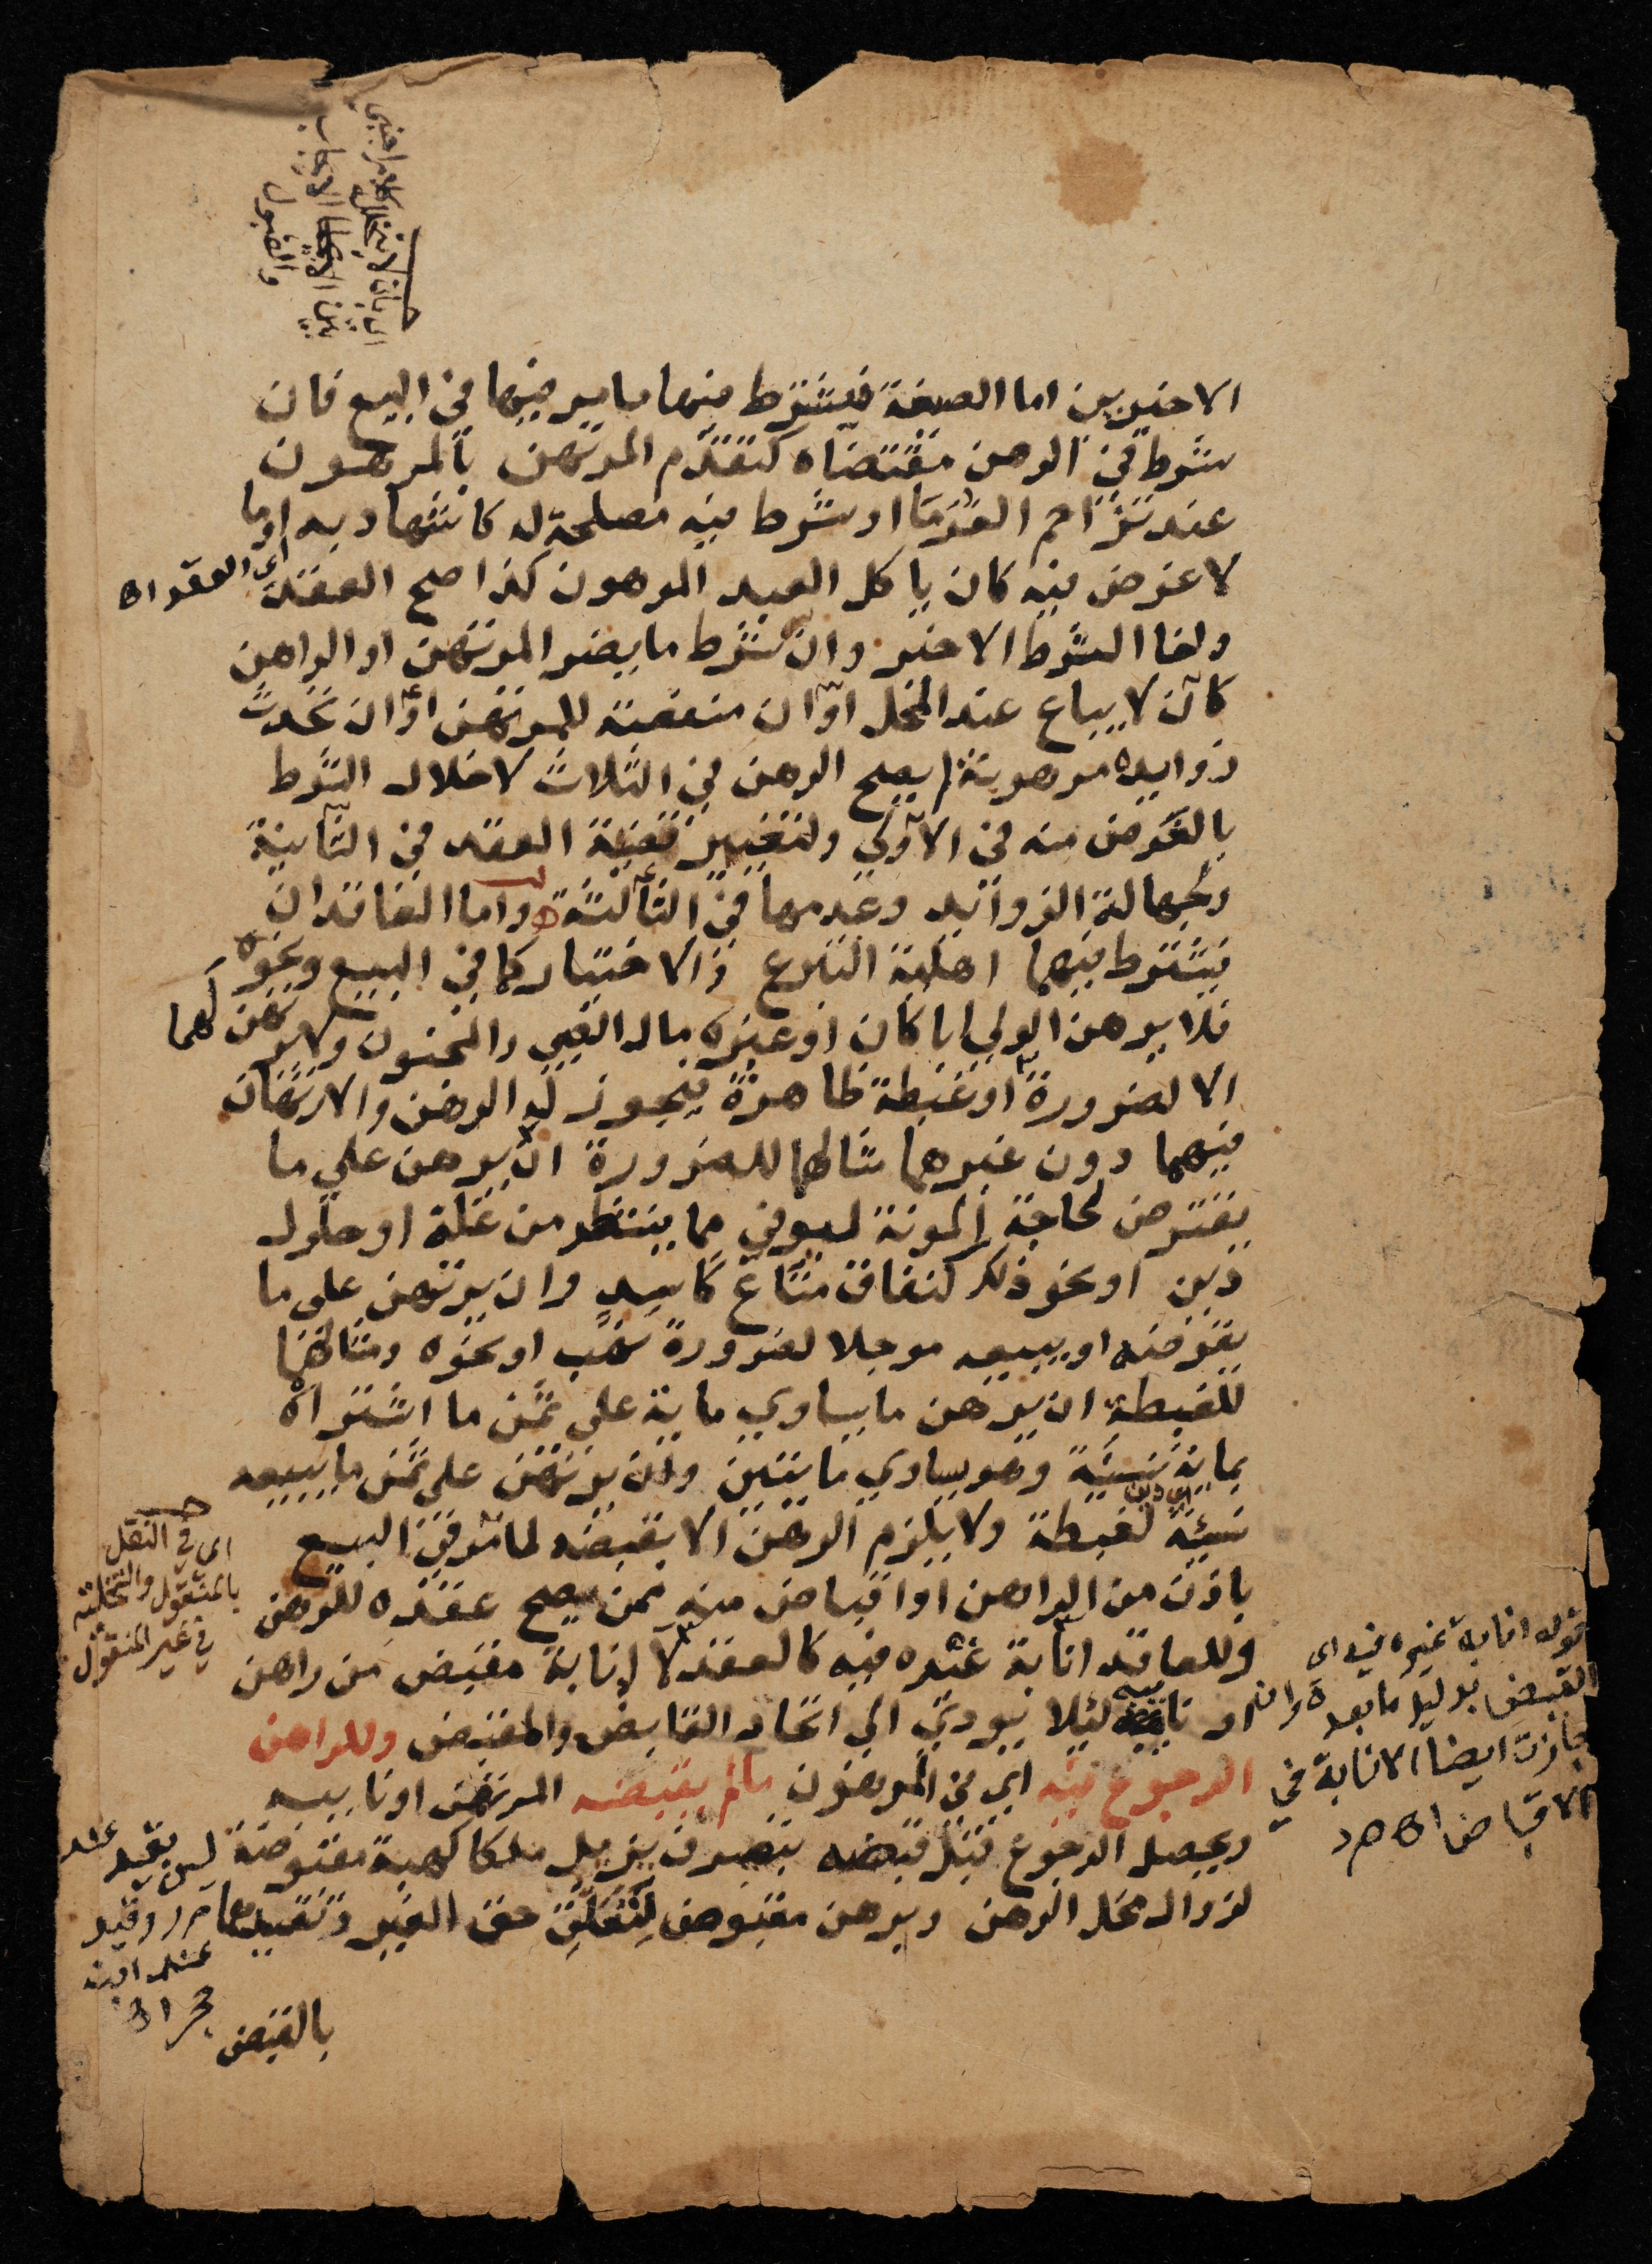 اي بان لا يتخلل كلام اجنبي
بين الايجاب
والقبول
الاخيرين اما الصيغة فيشترط فيها ما مر فيها في البيع فان
شرط في الرهن مقتضاه كتقدم المرتهن بالمرهون
عند تزاحم الغرما او شرط فيه مصلحة له كاشهاد به او ما
لا غرض فيه كان ياكل العبد المرهون كذا صح العقد
اي العقد اه
ولغا الشرط الاخير وان شرط ما يضر المرتهن او الراهن
كان لا يباع عند المحل او ان منفعته للمرتهن او ان تحدث
زوايده مرهونة لم يصح الرهن في الثلاث لاخلال الشرط
بالغرض منه في الاولي ولتغيير قضية العقد في الثانية
ولجهالة الزوائد وعدمها في الثالثة واما العاقدان
فيشترط فيهما اهلية التبرع والاختيار كما في البيع ونحوه
فلا يرهن الولي ابا كان او غيره مال الصبي والمجنون ولا يرتهن لهما
الا لضرورة او غبطة ظاهرة فيجوز له الرهن والارتهان
فيهما دون غيرهما مثالهما للضرورة ان يرهن على ما
يقترض لحاجة المونة ليوفي مما ينتظر من غلة او حلول
دين او نحو ذلك كنفاق متاع كاسد وان يرتهن على ما
يقرضه او يبيعه موجلا لضرورة نهب او نحوه ومثالهما
للغبطة ان يرهن ما يساوي ماية على ثمن ما اشتراه
بماية نسيئة وهو يساوي مايتين وان يرتهن على ثمن ما يبيعه
نسيئة لغبطة ولا يلزم الرهن الا بقبضه لما مر في البيع
اي دين
باذن من الراهن او اقباض منه ممن يصح عقده للرهن
وللعاقد انابة غيره فيه كالعقد لا انابة مقبض من راهن
او نائبه لئلا يودي الي اتحاد القابض والمقبض وللراهن
الرجوع فيه اي في المرهون ما لم يقبضه المرتهن او نايبه
ويحصل الرجوع قبل قبضه بتصرف يزيل ملكا كهبة مقبوضة
لزوال محل الرهن وبرهن مقبوض لتعلق حق الغير وتقييدهما
بالقبض
اي في النقل
بالمنقول والتخلية
في غير المنقول
قوله انابة غيره فيه اي
القبض بدليل ما بعده وان
جازت ايضا الانابة في
الاقباض اه م ر
ليس بقيد عند
م ر وقيد
عند ابن
حجر اه